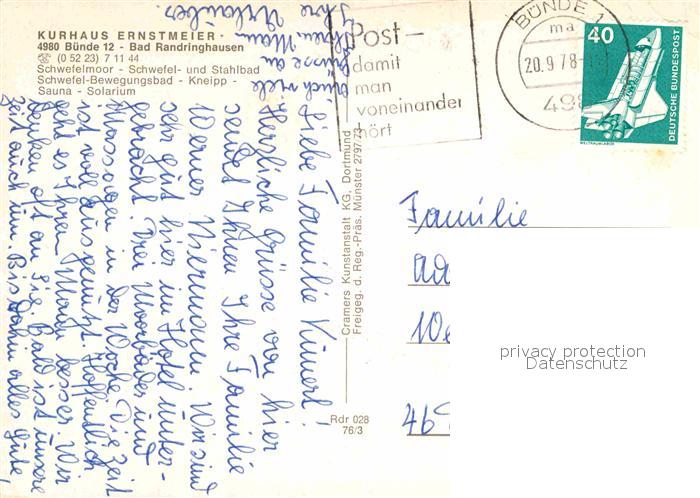 KURHAUS ERNSTMEIER
4980 Bünde 12 - Bad Randringhausen
☏ (0 52 23) 7 11 44
Schwefelmoor - Schwefel- und Stahlbad
Schwefel-Bewegungsbad - Kneipp -
Sauna - Solarium
Post-
damit
man
voneinander
hört
BÜNDE 1
ma
20.9.78
498
40
DEUTSCHE BUNDESPOST
WELTRAUMLABOR
Liebe Familie Künert!
Herzliche Grüsse von hier
sendet Ihnen Ihre Familie
Werner Niermann. Wir sind
sehr gut hier im Hotel unter-
gebracht. Drei Moorbäder und
Massagen in der Woche. Die Zeit
ist voll ausgenützt. Hoffentlich
geht es Ihrem Mann besser. Wir
denken oft an Sie. Bald ist unsere
Zeit auch um. Bis dahin alles Gute,
auch viele
Grüsse an
Ihren Mann
Ihre Urlauber.
Cramers Kunstanstalt KG, Dortmund
Freigeg. d. Reg.-Präs. Münster 2797/73
Rdr 028
76/3
Familie
We
46
privacy protection
Datenschutz